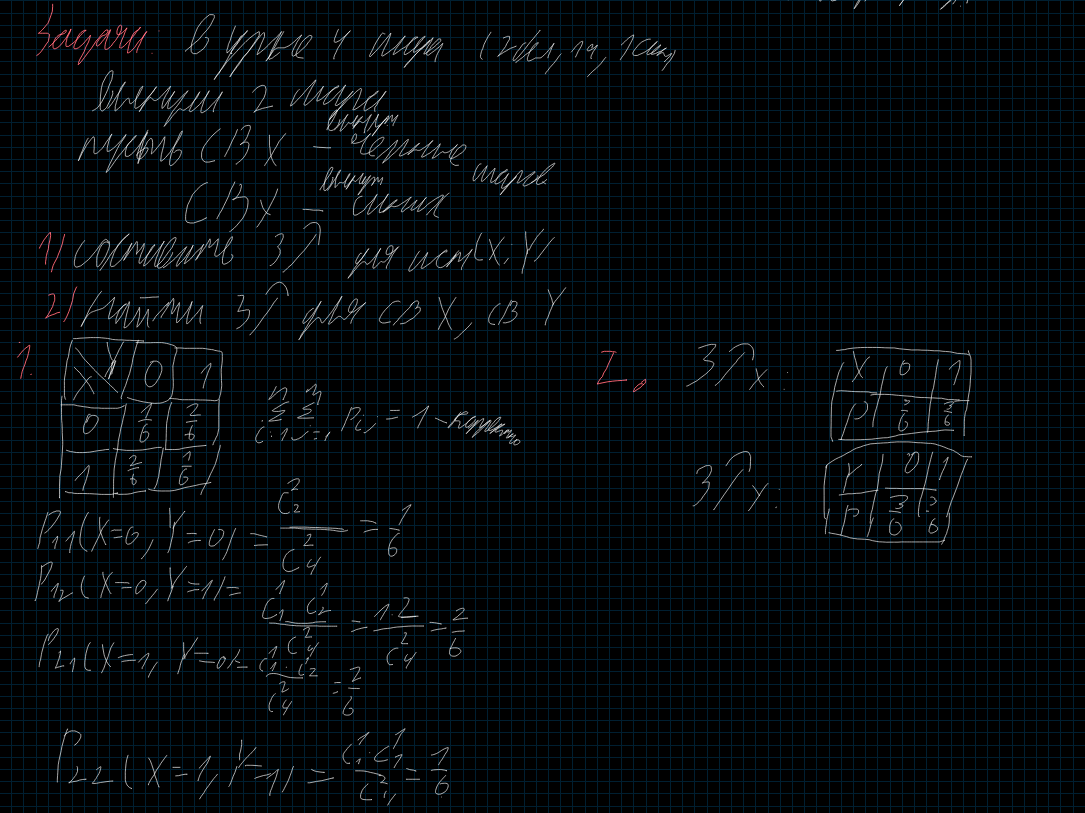 Задача: В урне 4 шара (2бел, 1ч, 1син)
Вынули 2 шара
пусть СВ X – вынут черные
СВ Y – вынут синих шаров
1) составить ЗР для сист (X; Y)
2) Найти ЗР для СВ X, СВ Y
1.
X Y 0 1
0 1/6 2/6
1 2/6 1/6
n m
Σ Σ Pij = 1 – корректно
i=1 j=1
P11 (X=0, Y=0) = C₂²/C₄² = 1/6
P12 (X=0, Y=1) = C₁¹ C₂¹/C₄² = 1·2/C₄² = 2/6
P21 (X=1, Y=0) = C₁¹·C₂¹/C₄² = 2/6
P22 (X=1, Y=1) = C₁¹·C₁¹/C₄² = 1/6
2.
ЗРX
X 0 1
P 3/6 3/6
ЗРY:
Y 0 1
P 3/6 3/6